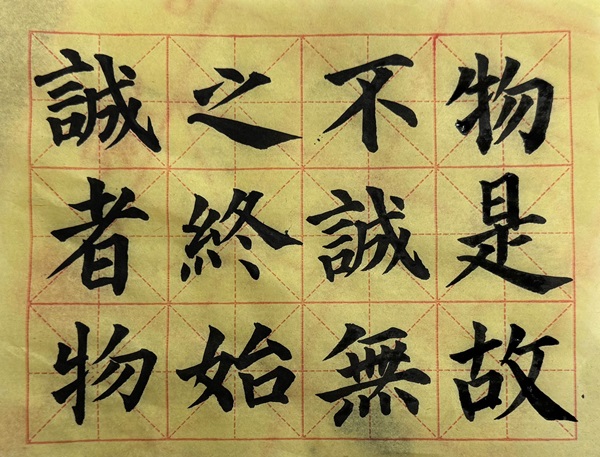 誠者物
之終始
不誠無
物是故